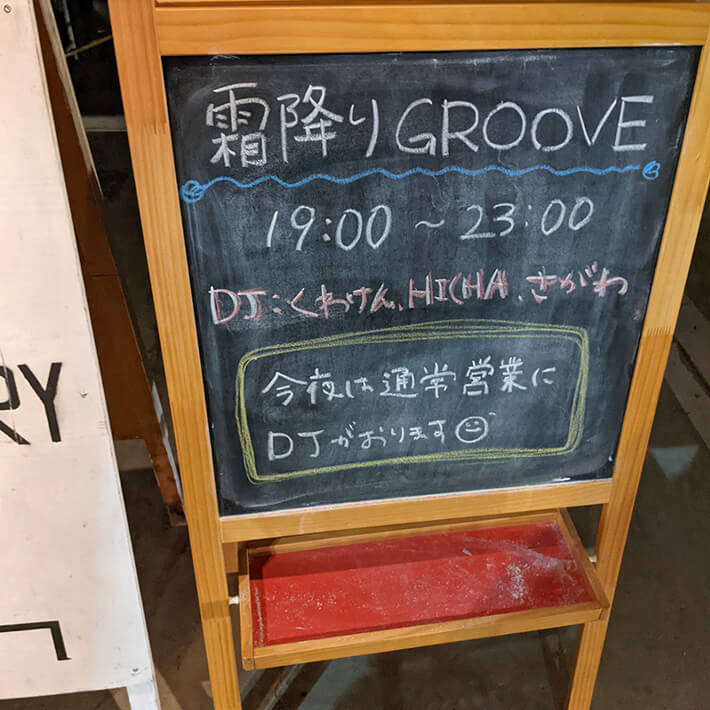 霜降りGROOVE
19:00 ~ 23:00
DJ:くわけん、HICHA、さがわ
今夜は通常営業に
DJがおります
RY